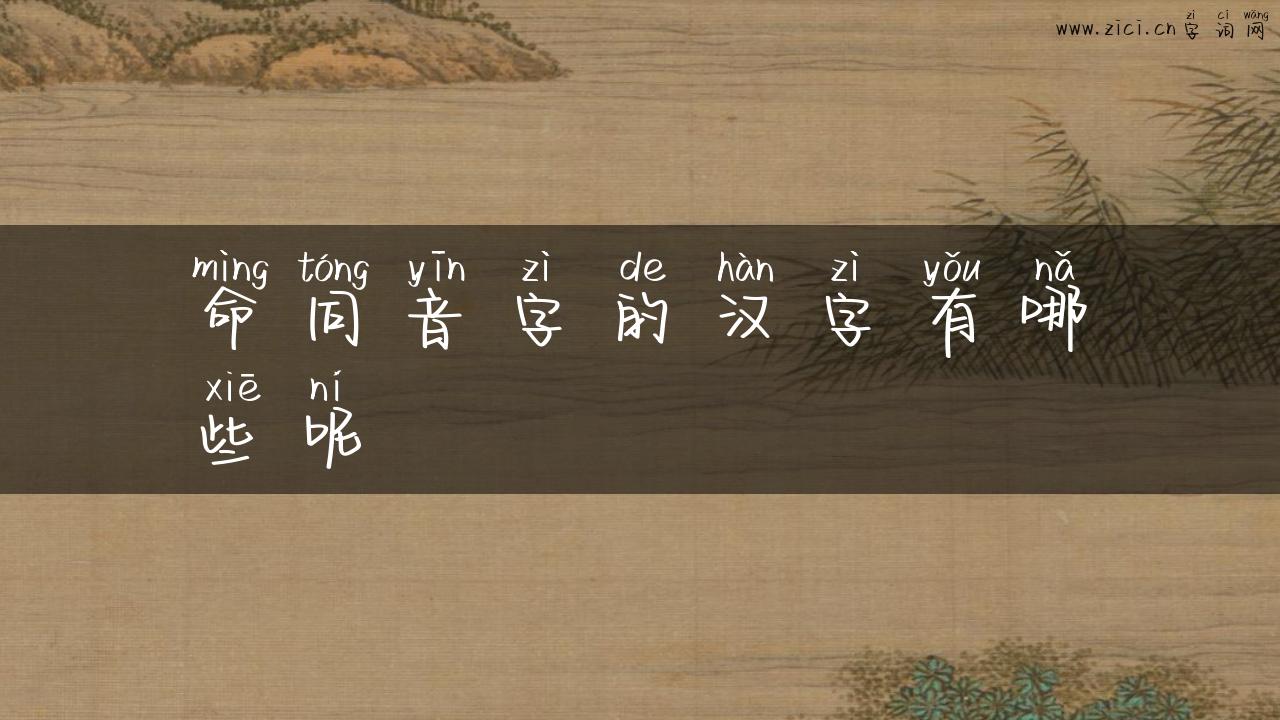 zì cí wǎng
www.zici.cn 字 词 网
mìng tóng yīn zì de hàn zì yǒu nǎ
命 同 音 字 的 汉 字 有 哪
xiē ní
些 呢